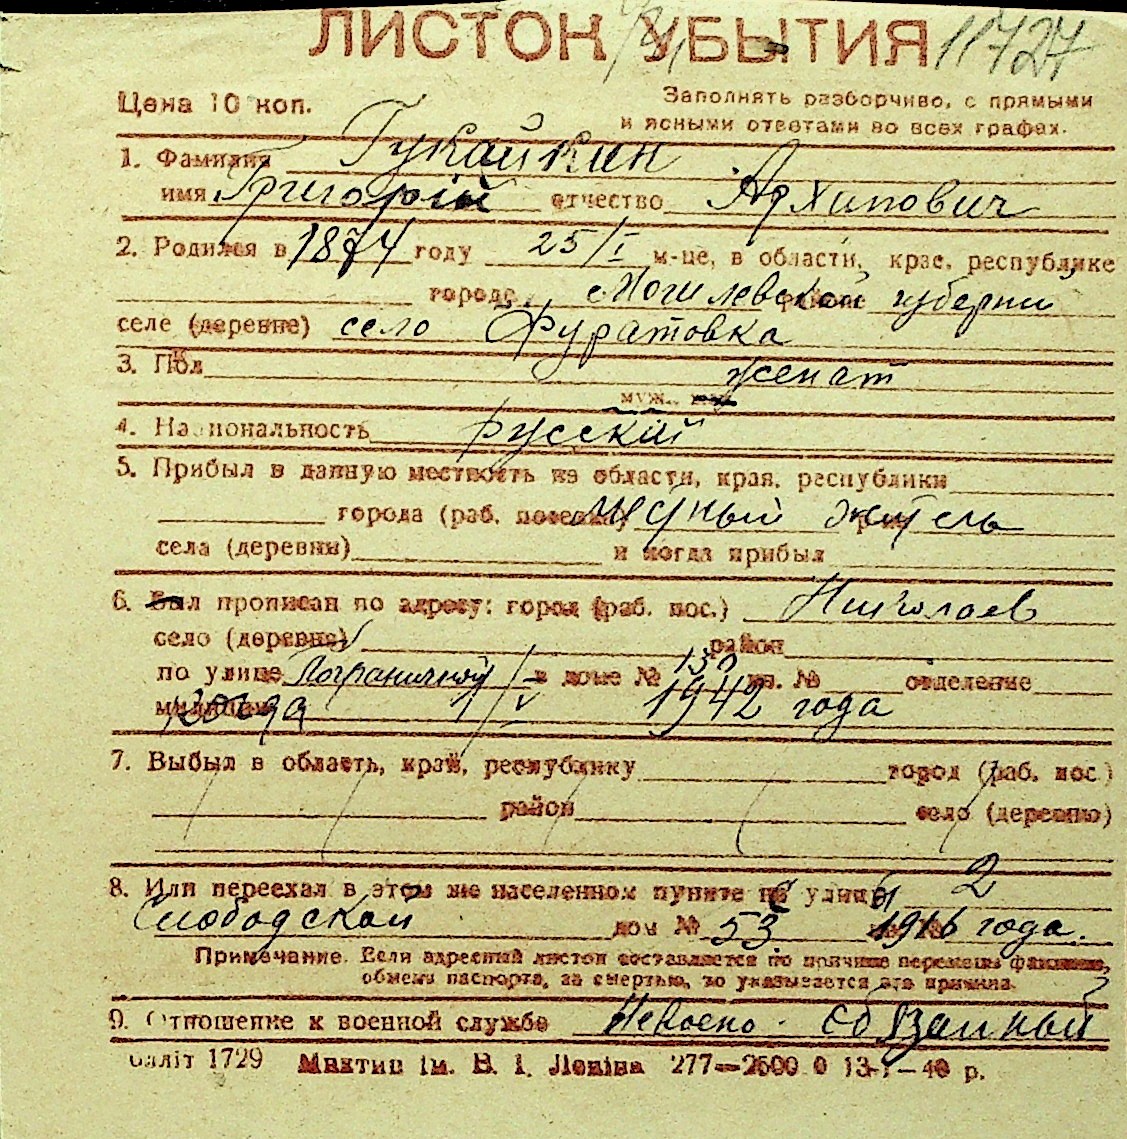 ЛИСТОК УБЫТИЯ 11727
Цена 10 коп.
Заполнять разборчиво, с прямыми
и ясными ответами во всех графах.
1. Фамилия Гукайкин
имя Григорій отчество Архипович
2. Родился в 1874 году 25/I м-це, в области, крае, республике
городе Могилевской районе губерни
селе (деревне) село Фуратовка
3. Пол женат
муж.
4. Национальность русский
5. Прибыл в данную местность из области, края, республики
города (раб. поселка) місный житель
села (деревни) и когда прибыл
6. Был прописан по адресу: город (раб. пос.) Николаев
село (деревня) район
по улице Пограничной в доме № 130 кв. № отделение
милиции 1/V 1942 года
7. Выбыл в область, край, республику город (раб. пос.)
район село (деревню)
8. Или переехал в этом же населенном пункте с улицы 2
Слободской дом № 53 1916 года.
Примечание. Если адресный листок составляется по причине перемены фамилии,
обмена паспорта, за смертью, то указывается эта причина.
9. Отношение к военной службе Невоено-обязанный
Обліт 1729 Миктип ім. В. І. Леніна 277—2500 0 13-I-40 р.